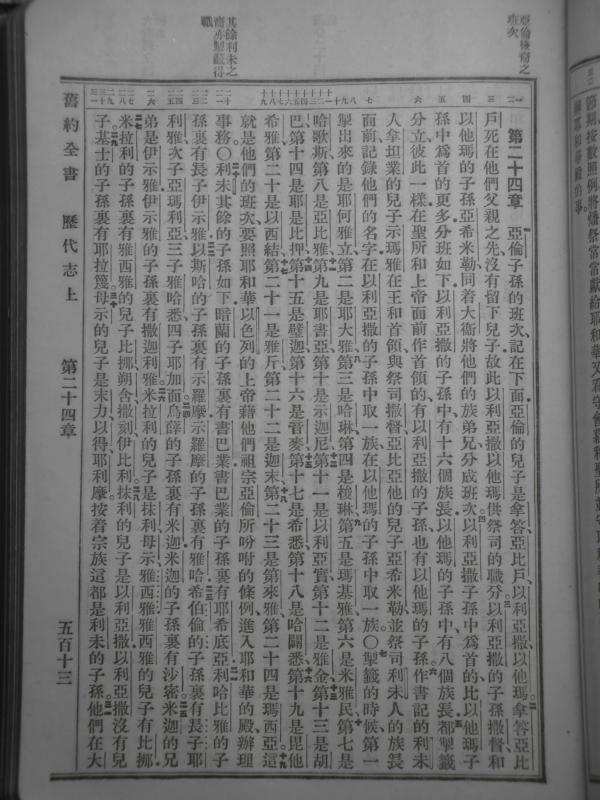 亞倫後裔之
班次
其餘利未之
裔亦掣籤得
職
第二十四章 亞倫子孫的班次記在下面亞倫的兒子是拿答亞比戶以利亞撒以他瑪拿答亞比
戶死在他們父親之先沒有留下兒子故此以利亞撒以他瑪供祭司的職分以利亞撒的子孫撒督和
以他瑪的子孫亞希米勒同着大衞將他們的族弟兄分成班次以利亞撒子孫中爲首的比以他瑪子
孫中爲首的更多分班如下以利亞撒的子孫中有十六個族長以他瑪的子孫中有八個族長都掣籤
分立彼此一樣在聖所和上帝面前作首領的有以利亞撒的子孫也有以他瑪的子孫作書記的利未
人拿坦業的兒子示瑪雅在王和首領與祭司撒督亞比亞他的兒子亞希米勒並祭司利未人的族長
面前記錄他們的名字在以利亞撒的子孫中取一族在以他瑪的子孫中取一族〇掣籤的時候第一
掣出來的是耶何雅立第二是耶大雅第三是哈琳第四是梭琳第五是瑪基雅第六是米雅民第七是
哈歌斯第八是亞比雅第九是耶書亞第十是示迦尼第十一是以利亞實第十二是雅金第十三是胡
巴第十四是耶是比押第十五是璧迦第十六是音麥第十七是希悉第十八是哈闢悉第十九是毘他
希雅第二十是以西結第二十一是雅斤第二十二是迦末第二十三是第來雅第二十四是瑪西亞這
就是他們的班次要照耶和華以色列的上帝藉他們祖宗亞倫所吩咐的條例進入耶和華的殿辦理
事務〇利未其餘的子孫如下暗蘭的子孫裏有書巴業書巴業的子孫裏有耶希底亞利哈比雅的子
孫裏有長子伊示雅以斯哈的子孫裏有示羅摩示羅摩的子孫裏有雅哈希伯倫的子孫裏有長子耶
利雅次子亞瑪利亞三子雅哈悉四子耶加面烏薛的子孫裏有米迦米迦的子孫裏有沙密米迦的兄
弟是伊示雅伊示雅的子孫裏有撒迦利雅米拉利的兒子是抹利母示雅西雅雅西雅的兒子有比挪
米拉利的子孫裏有雅西雅的兒子比挪朔含撒刻伊比利抹利的兒子是以利亞撒以利亞撒沒有兒
子基士的子孫裏有耶拉篾母示的兒子是末力以得耶利摩按着宗族這都是利未的子孫他們在大
舊約全書 歷代志上 第二十四章 五百十三